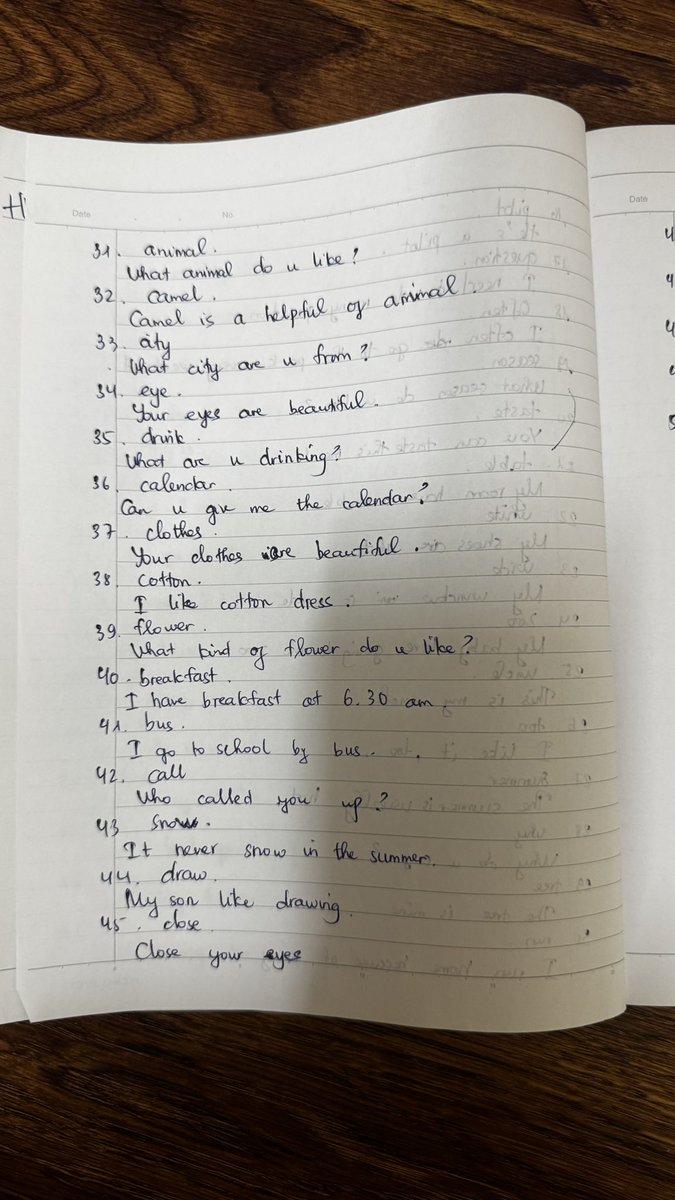 Date No.
31. animal.
What animal do u like?
32. Camel.
Camel is a helpful of animal.
33. city
What city are u from?
34. eye.
Your eyes are beautiful.
35. drink.
What are u drinking?
36. calendar.
Can u give me the calendar?
37. clothes.
Your clothes are beautiful.
38. cotton.
I like cotton dress.
39. flower.
What kind of flower do u like?
40. breakfast.
I have breakfast at 6.30 am.
41. bus.
I go to school by bus.
42. call
Who called you up?
43 snow.
It never snow in the summer.
44. draw.
My son like drawing.
45. close
Close your eyes
Date